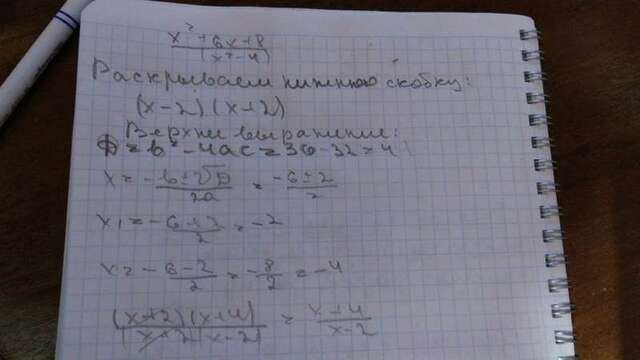 x² + 6x + 8
(x² - 4)
Раскрываем нижнюю скобку:
(x-2)(x+2)
Верхнее выражение:
D = b² - 4ac = 36 - 32 = 4
x = -b ± √D / 2a = -6 ± 2 / 2
x₁ = -6 + 2 / 2 = -2
x₂ = -6 - 2 / 2 = -8 / 2 = -4
(x+2)(x+4) / (x+2)(x-2) = x+4 / x-2